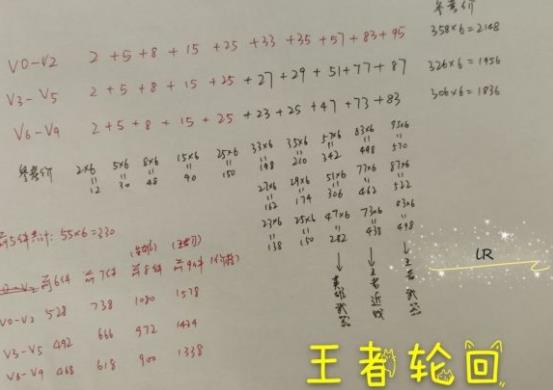 参考价
V0-V2 2+5+8+15+25+33+35+57+83+95 358×6=2148
V3-V5 2+5+8+15+25+27+29+51+77+87 326×6=1956
V6-V9 2+5+8+15+25+23+25+47+73+83 306×6=1836
参考价 2×6 5×6 8×6 15×6 25×6 33×6 35×6 57×6 83×6 95×6
= = = = = = = = = =
12 30 48 90 150 198 210 342 498 570
27×6 29×6 51×6 77×6 87×6
= = = = =
162 174 306 462 522
23×6 25×6 47×6 73×6 83×6
= = = = =
138 150 282 438 498
前5件共计: 55×6=330
前6件 前7件 前8件 前9件
V0-V2 528 738 1080 1578
V3-V5 492 666 972 1434
V6-V9 468 618 900 1338
英雄武器
王者近战
王者武器
LR
王者轮回